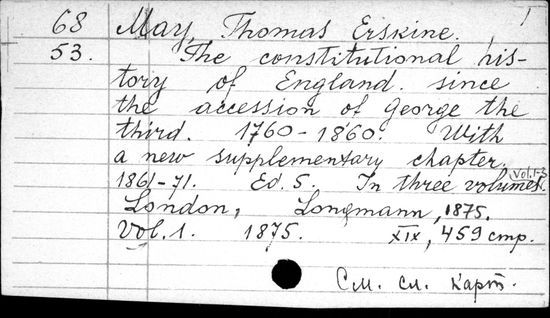 68 May, Thomas Erskine. 1
53. The constitutional his-
tory of England since
the accession of George the
third. 1760-1860. With
a new supplementary chapter.
1861-71. Ed. 5. In three volumes. Vol. 1-3
London, Longmann, 1875.
Vol. 1. 1875. XIX, 459 стр.
См. сл. карт.